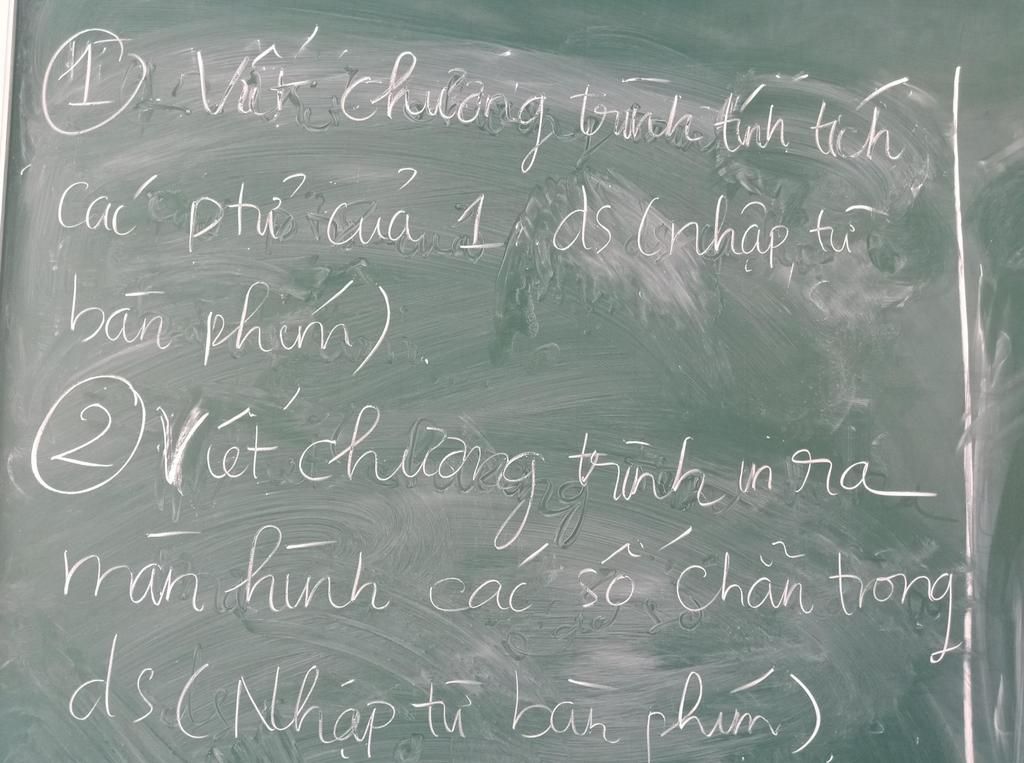 ① Viết chương trình tính tích
các ptử của 1 ds (nhập từ
bàn phím).
② Viết chương trình in ra
màn hình các số chẵn trong
ds (Nhập từ bàn phím)